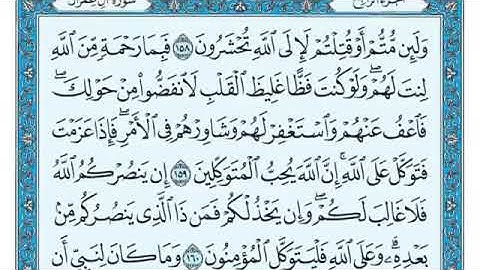 سورة آل عمران الجزء الرابع
وَلَئِن مُّتُّمْ أَوْ قُتِلْتُمْ لَإِلَى ٱللَّهِ تُحْشَرُونَ ١٥٨ فَبِمَا رَحْمَةٍ مِّنَ ٱللَّهِ
لِنتَ لَهُمْ ۖ وَلَوْ كُنتَ فَظًّا غَلِيظَ ٱلْقَلْبِ لَٱنفَضُّوا۟ مِنْ حَوْلِكَ ۖ
فَٱعْفُ عَنْهُمْ وَٱسْتَغْفِرْ لَهُمْ وَشَاوِرْهُمْ فِى ٱلْأَمْرِ ۖ فَإِذَا عَزَمْتَ
فَتَوَكَّلْ عَلَى ٱللَّهِ ۚ إِنَّ ٱللَّهَ يُحِبُّ ٱلْمُتَوَكِّلِينَ ١٥٩ إِن يَنصُرْكُمُ ٱللَّهُ
فَلَا غَالِبَ لَكُمْ ۖ وَإِن يَخْذُلْكُمْ فَمَن ذَا ٱلَّذِى يَنصُرُكُم مِّنۢ
بَعْدِهِۦ ۗ وَعَلَى ٱللَّهِ فَلْيَتَوَكَّلِ ٱلْمُؤْمِنُونَ ١٦٠ وَمَا كَانَ لِنَبِىٍّ أَن